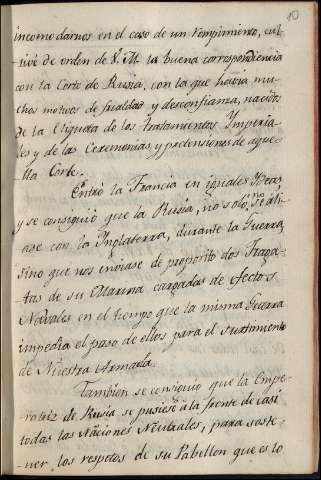 10
incomodarnos en el caso de un rompimiento, cul-
tivé de orden de V. M. la buena correspondiencia
con la Corte de Rusia, con la que havia mu-
chos motivos de frialdad y desconfianza, nacidos
de la Etiqueta de los tratamientos Imperia-
les y de las Ceremonias y pretensiones de aque-
lla Corte.
Entró la Francia en iguales Ideas,
y se consiguió que la Rusia, no solo no se ali-
ase con la Inglaterra, durante la Guerra,
sino que nos inviase de proposito dos Fraga-
tas de su Marina cargadas de efectos
Navales en el tiempo que la misma Guerra
impedia el paso de ellos para el surtimiento
de Nuestra Armada.
Tambien se consiguió que la Empe-
ratriz de Rusia se pusiese a la frente de casi
todas las Naciones Neutrales, para soste-
ner los respetos de su Pabellon que es lo